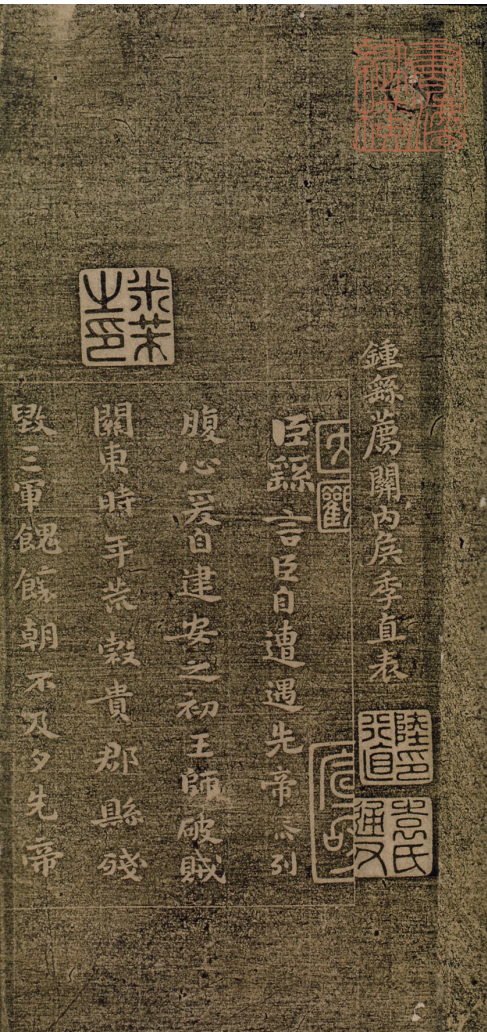 鍾繇薦關內侯季直表
臣繇言臣自遭遇先帝忝列
腹心爰自建安之初王師破賊
關東時年荒穀貴郡縣殘
毀三軍餽饟朝不及夕先帝
米芾之印
大觀
陸行直印
袁氏通父